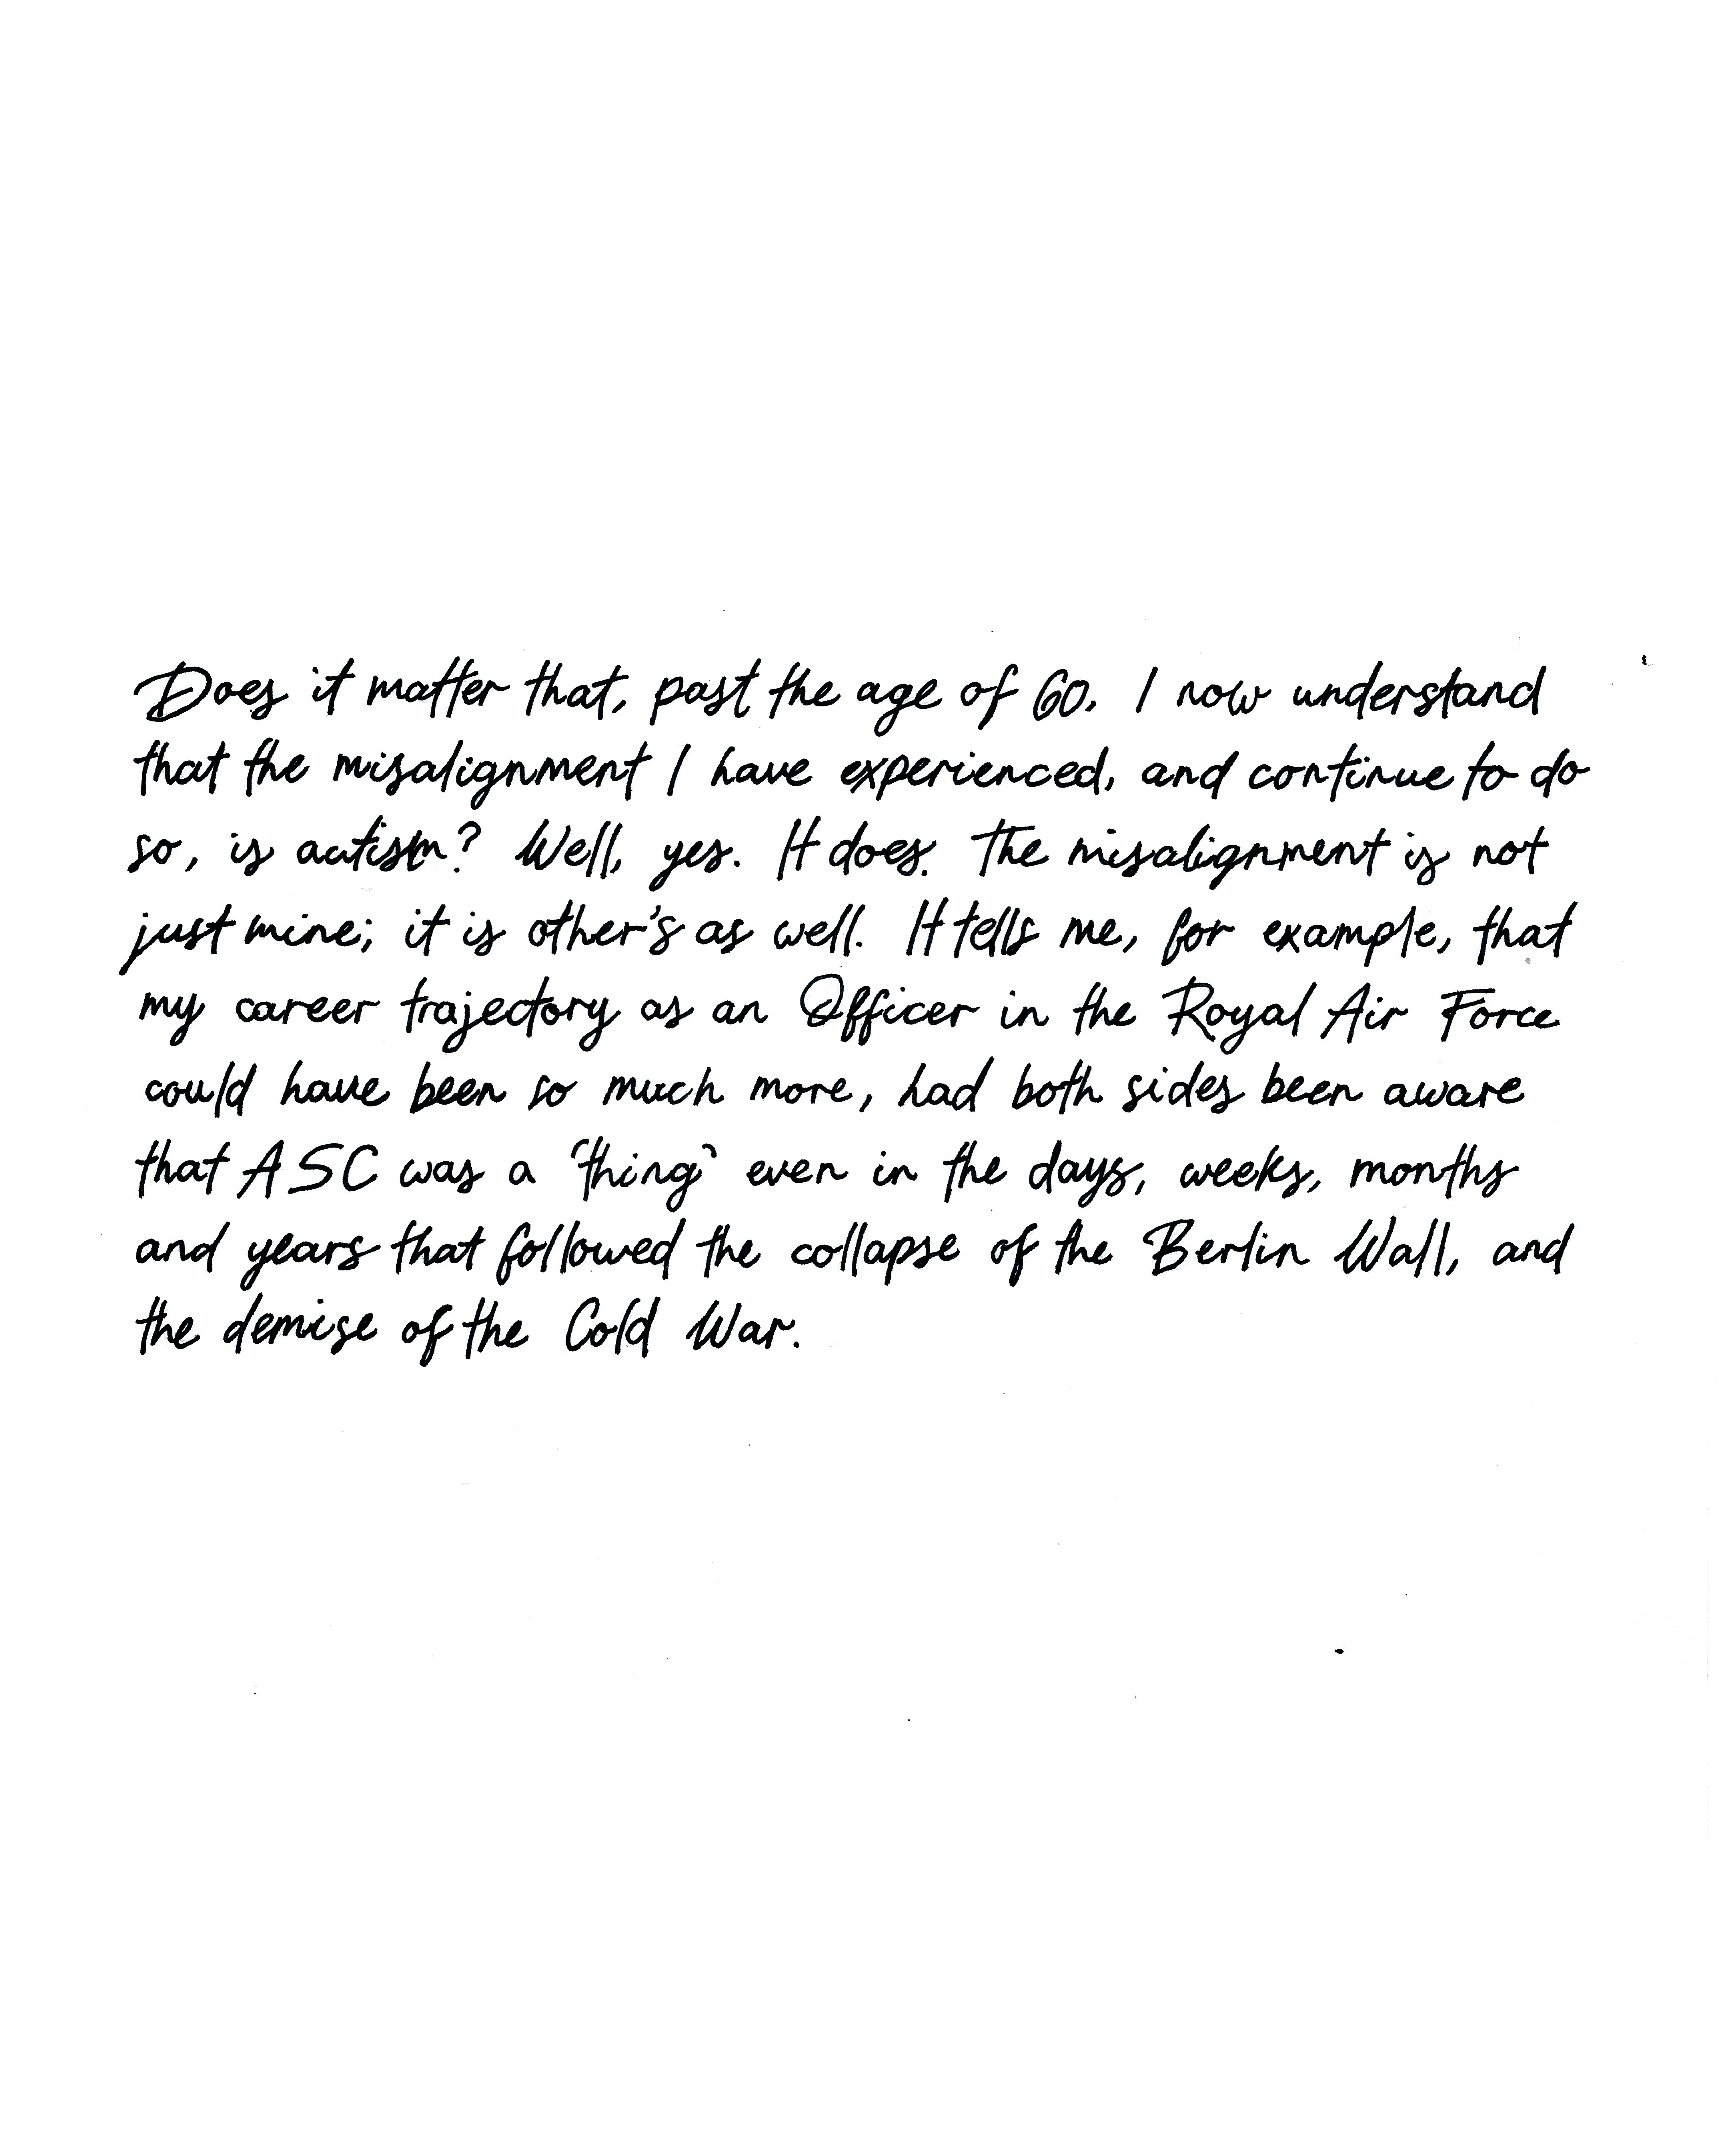 Does it matter that, past the age of 60, I now understand
that the misalignment I have experienced, and continue to do
so, is autism? Well, yes. It does. The misalignment is not
just mine; it is other's as well. It tells me, for example, that
my career trajectory as an Officer in the Royal Air Force
could have been so much more, had both sides been aware
that ASC was a 'thing' even in the days, weeks, months
and years that followed the collapse of the Berlin Wall, and
the demise of the Cold War.